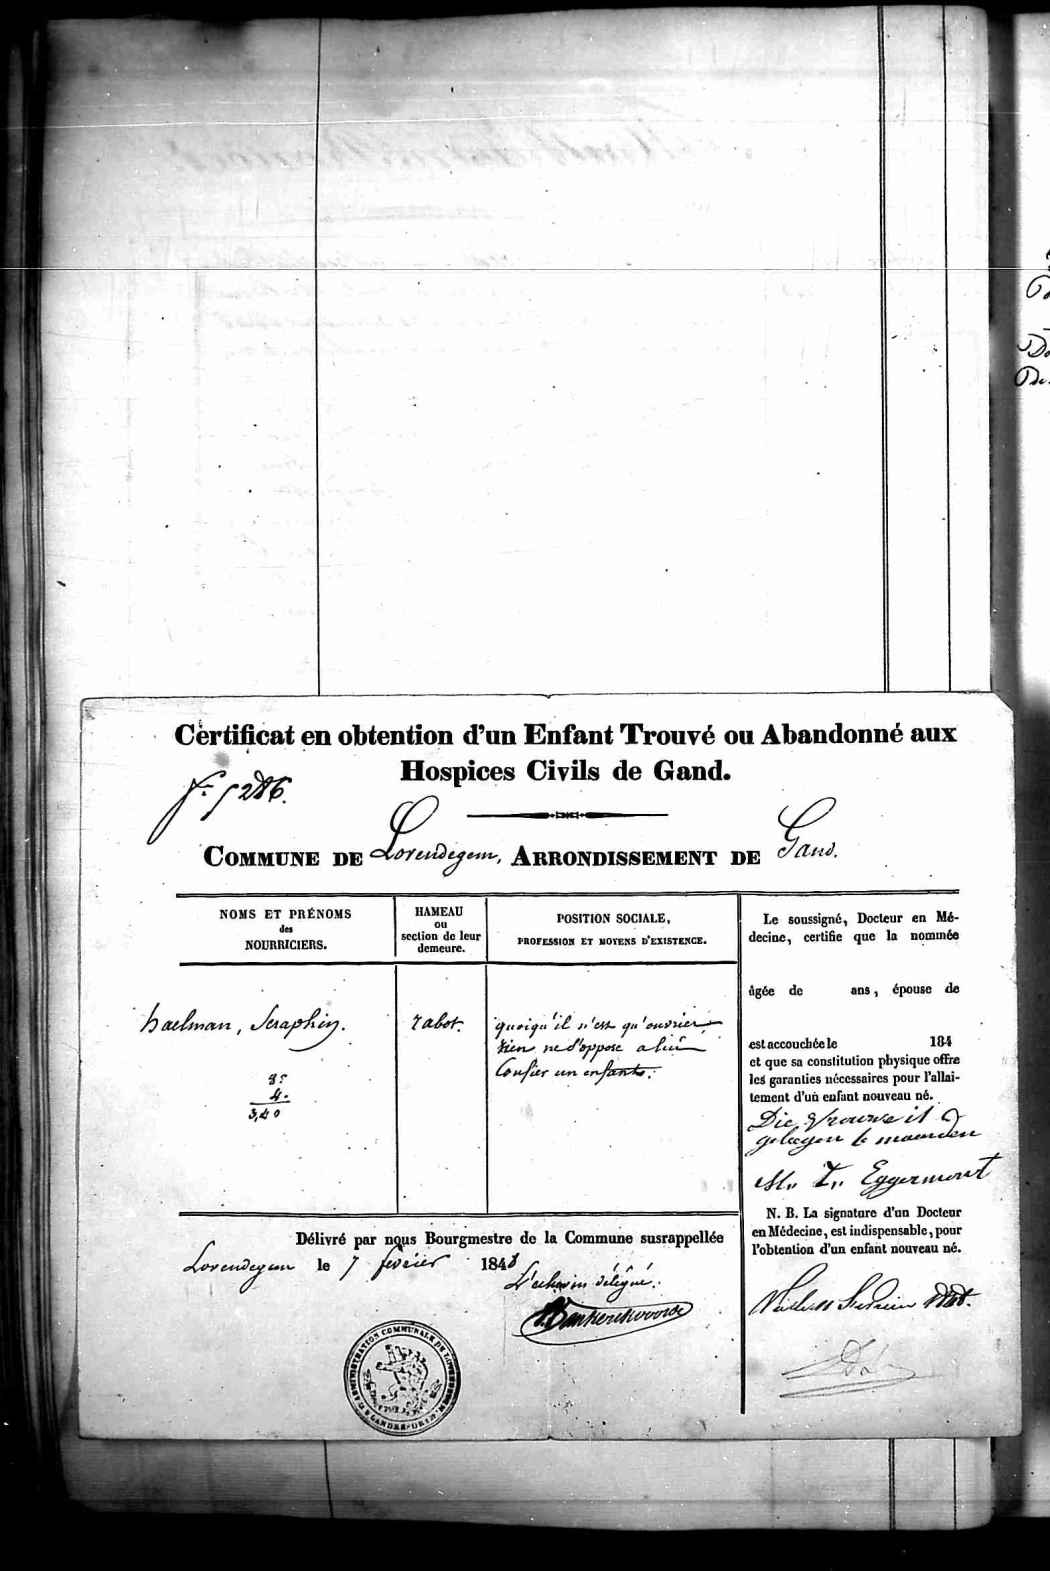 Certificat en obtention d'un Enfant Trouvé ou Abandonné aux
Hospices Civils de Gand.
5286.
COMMUNE DE Lovendegem, ARRONDISSEMENT DE Gand.
NOMS ET PRÉNOMS
des
NOURRICIERS.
HAMEAU
ou
section de leur
demeure.
POSITION SOCIALE,
PROFESSION ET MOYENS D'EXISTENCE.
haelman, Seraphin.
8:
4.
3,40
rabot.
quoiqu'il n'est qu'ouvrier
rien ne s'oppose a lui
Confier un enfant.
Le soussigné, Docteur en Mé-
decine, certifie que la nommée
âgée de ans, épouse de
est accouchée le 184
et que sa constitution physique offre
les garanties nécessaires pour l'allai-
tement d'un enfant nouveau né.
Die Vrouwe is
gelegen 6 maenden
M. T. Eggermont
N. B. La signature d'un Docteur
en Médecine, est indispensable, pour
l'obtention d'un enfant nouveau né.
Délivré par nous Bourgmestre de la Commune susrappellée
Lovendegem le 7 fevrier 1848
L'echevin délégué.
ADMINISTRATION COMMUNALE DE LOVENDEGEM
FLANDRE-ORIE